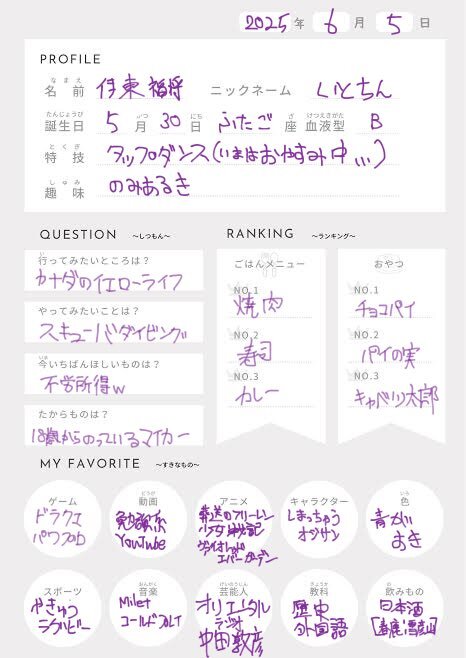 2025年 6月 5日
PROFILE
なまえ
名前 伊東福将 ニックネーム くいとちん
たんじょうび がつ にち ざ けつえきがた
誕生日 5月30日 ふたご座 血液型 B
とくぎ
特技 タップダンス(いまはおやすみ中...)
しゅみ
趣味 のみあるき
QUESTION ～しつもん～
行ってみたいところは?
カナダのイエローライフ
やってみたいことは?
スキューバダイビング
いま
今いちばんほしいものは?
不労所得w
たからものは?
18歳からのっているマイカー
RANKING ～ランキング～
ごはんメニュー
NO.1
焼肉
NO.2
寿司
NO.3
カレー
おやつ
NO.1
チョコパイ
NO.2
パイの実
NO.3
キャベツ太郎
MY FAVORITE ～すきなもの～
ゲーム
ドラクエ
パワプロ
どうが
動画
勉強系
YouTube
アニメ
葬送のフリーレン
ヴァイオレット
エバーガーデン
キャラクター
しまっちゃう
オジサン
いろ
色
青がい
おき
スポーツ
やきゅう
ラグビー
おんがく
音楽
Milet
コールドプレイ
げいのうじん
芸能人
オリエンタル
ラジオ
中田敦彦
きょうか
教科
歴史
外国語
の
飲みもの
日本酒